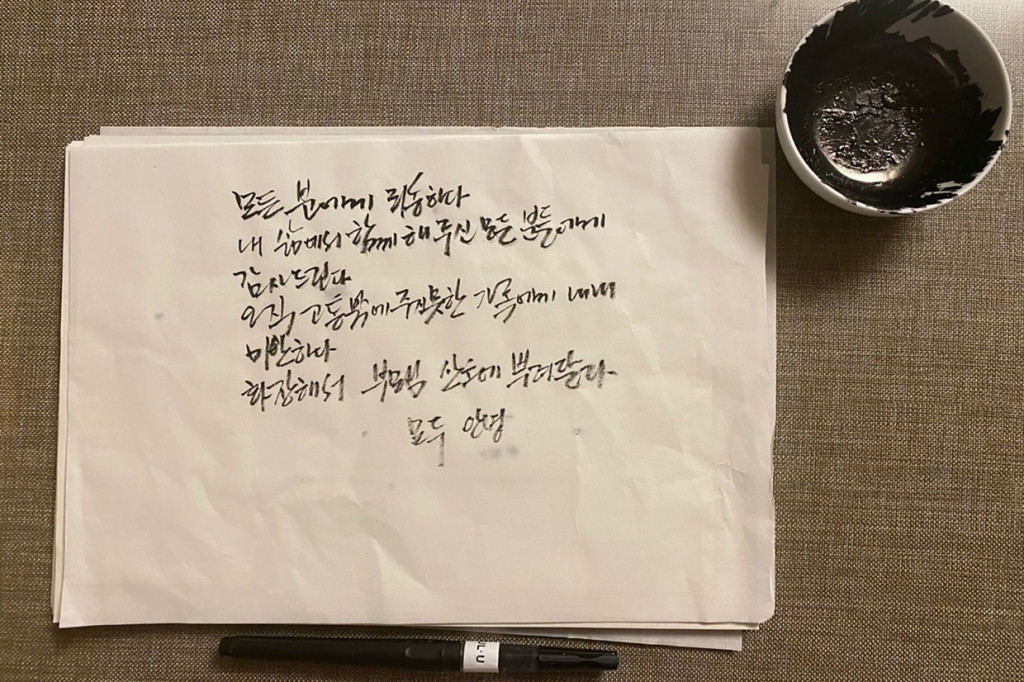 모든 분에게 죄송하다
내 삶에서 함께 해주신 모든 분들에게
감사드린다
오직 고통밖에 주지 못한 가족에게 내내
미안하다
화장해서 부모님 산소에 뿌려달라.
모두 안녕